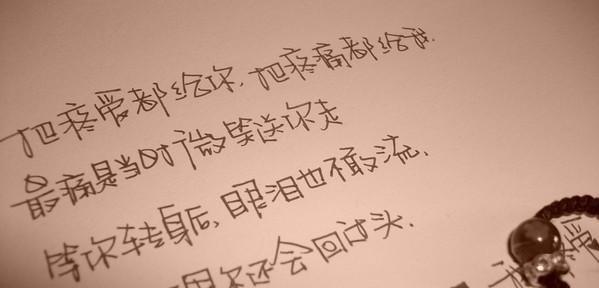 把疼爱都给你,把疼痛都给我.
最痛是当时微笑送你走
等你转身后,眼泪也不敢流,
果你还会回过头.
我 爱